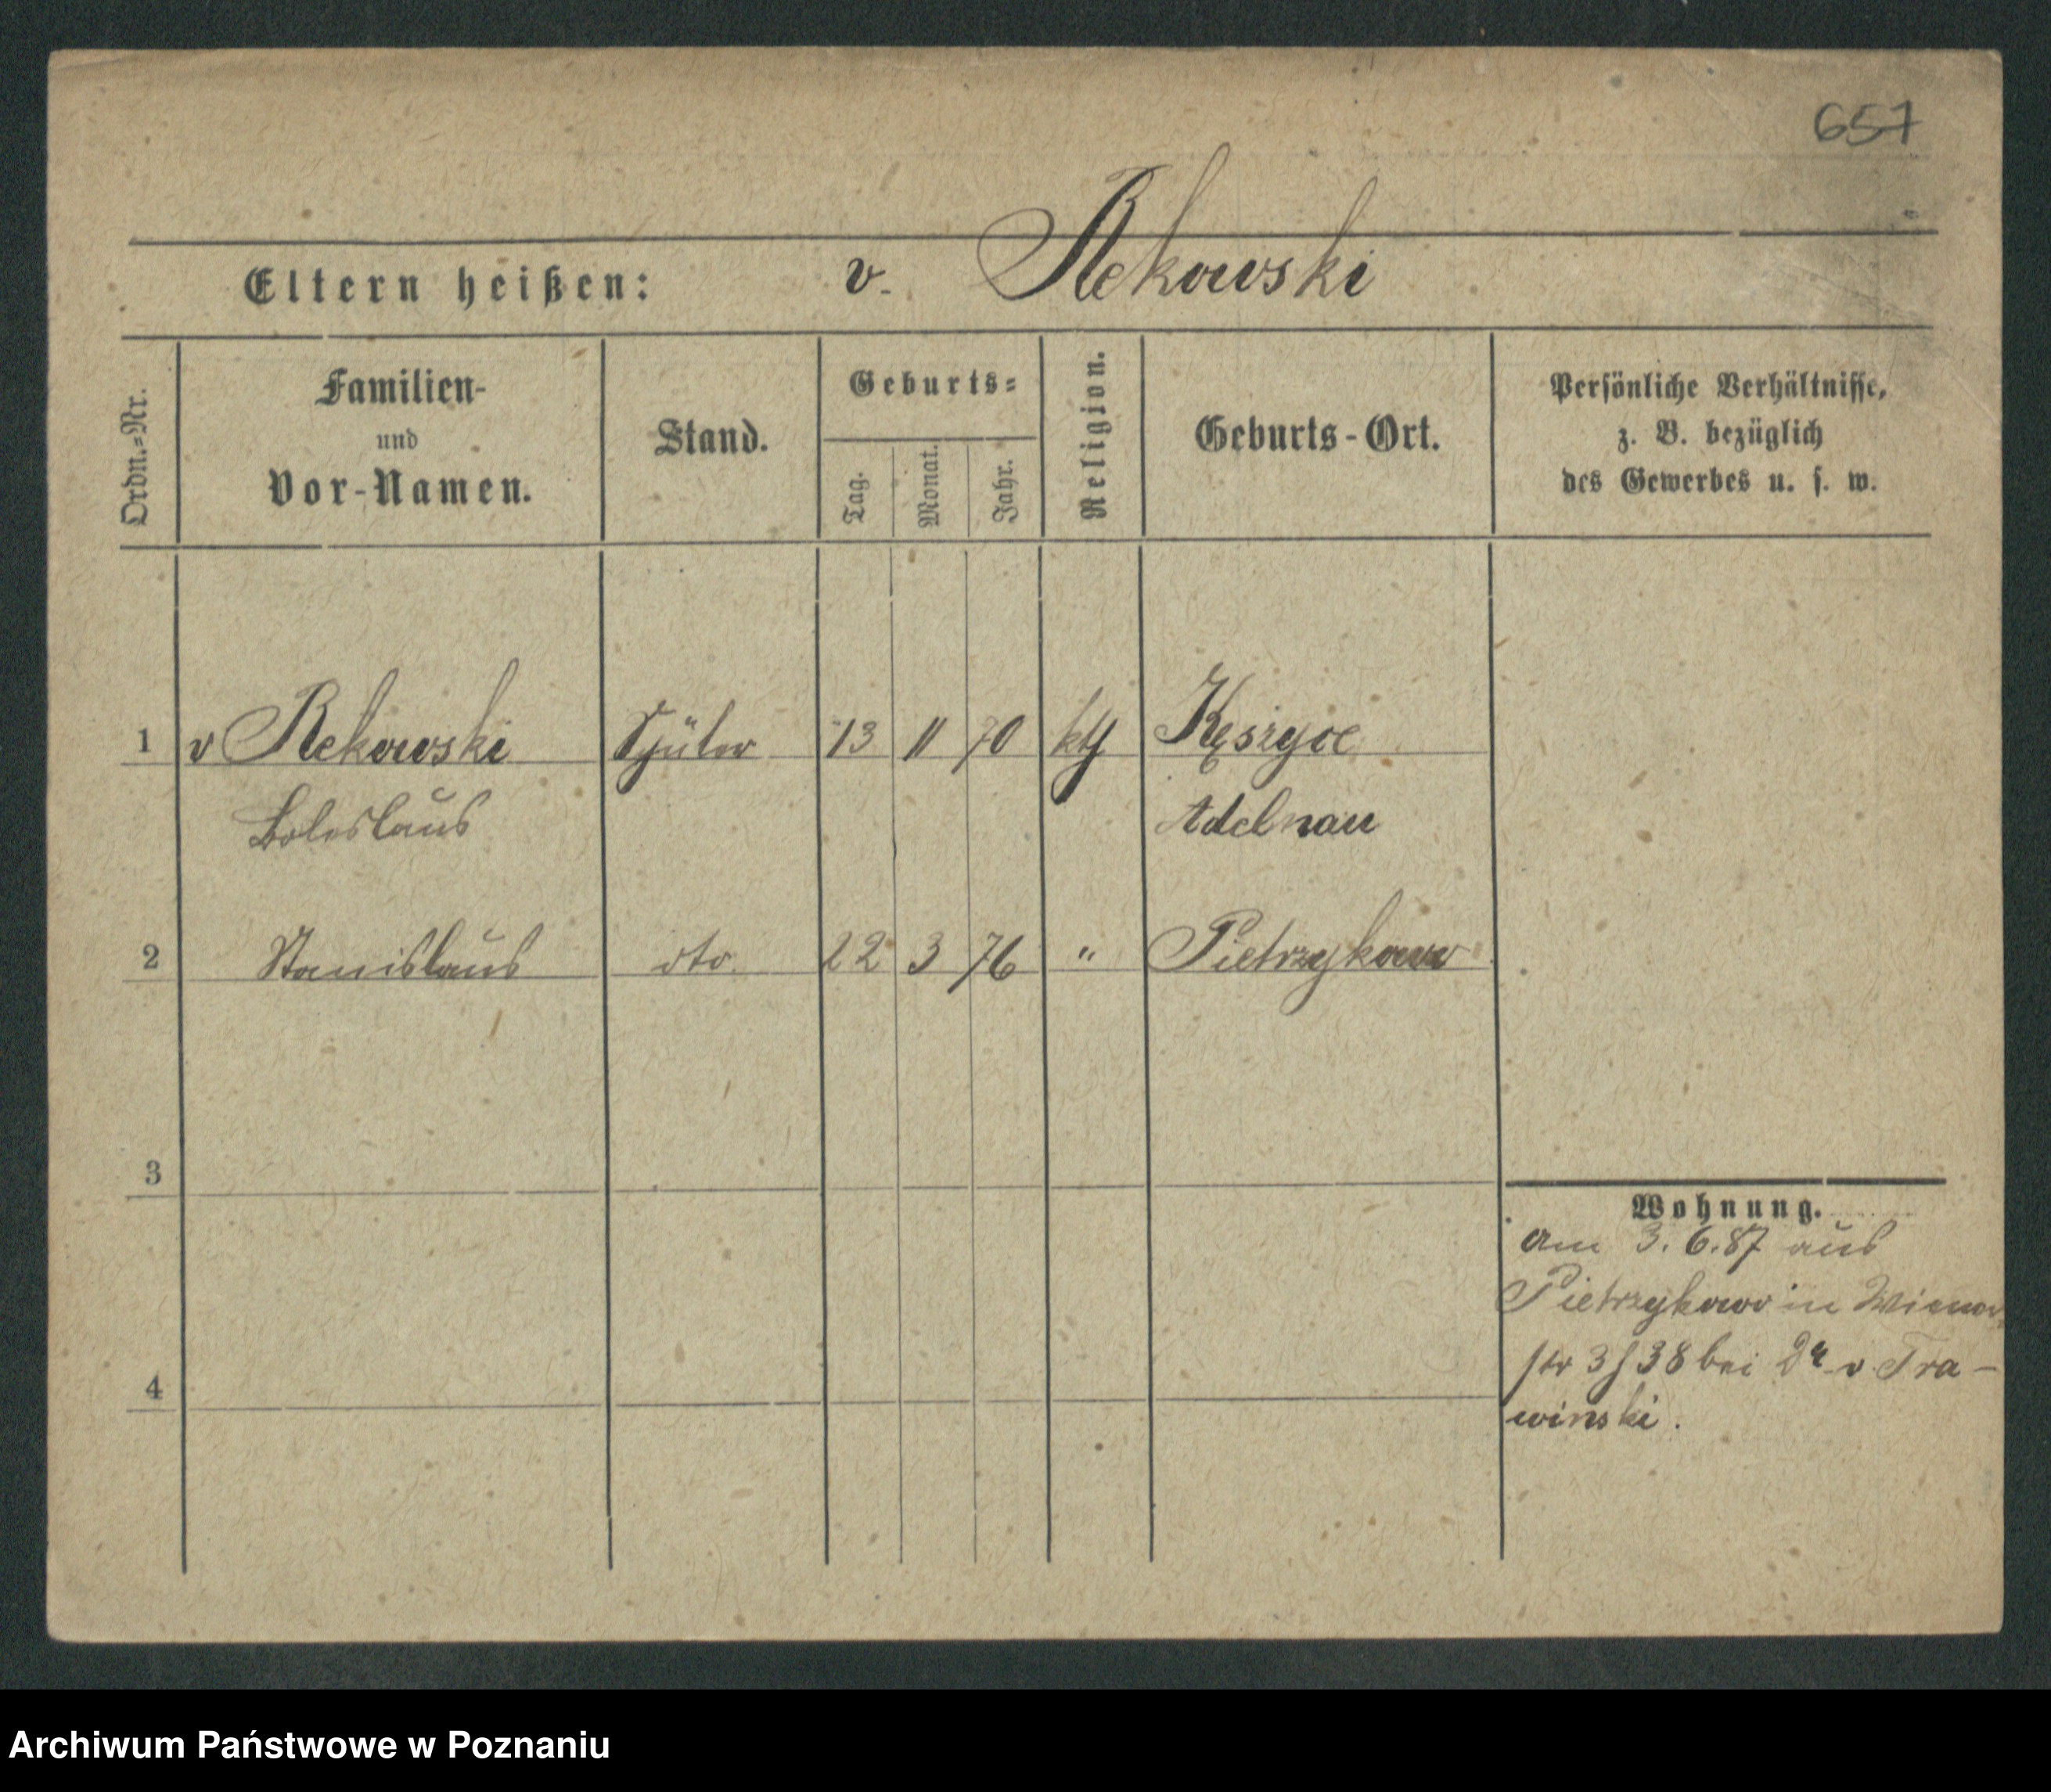 657
Eltern heißen: v. Rekowski
Ordn.=Nr.
Familien-
und
Vor-Namen.
Stand.
Geburts=
Tag.
Monat.
Jahr.
Religion.
Geburts-Ort.
Persönliche Verhältnisse,
z. B. bezüglich
des Gewerbes u. s. w.
1 v Rekowski 13 11 70 kth
Boleslaus Adelnau
2 Stanislaus dto. 22 3 76 " Pietrzykowo
3
4
Wohnung.
am 3. 6. 87 aus
Pietrzykowo in
str 38 bei Dr v. Tra-
winski.
Archiwum Państwowe w Poznaniu